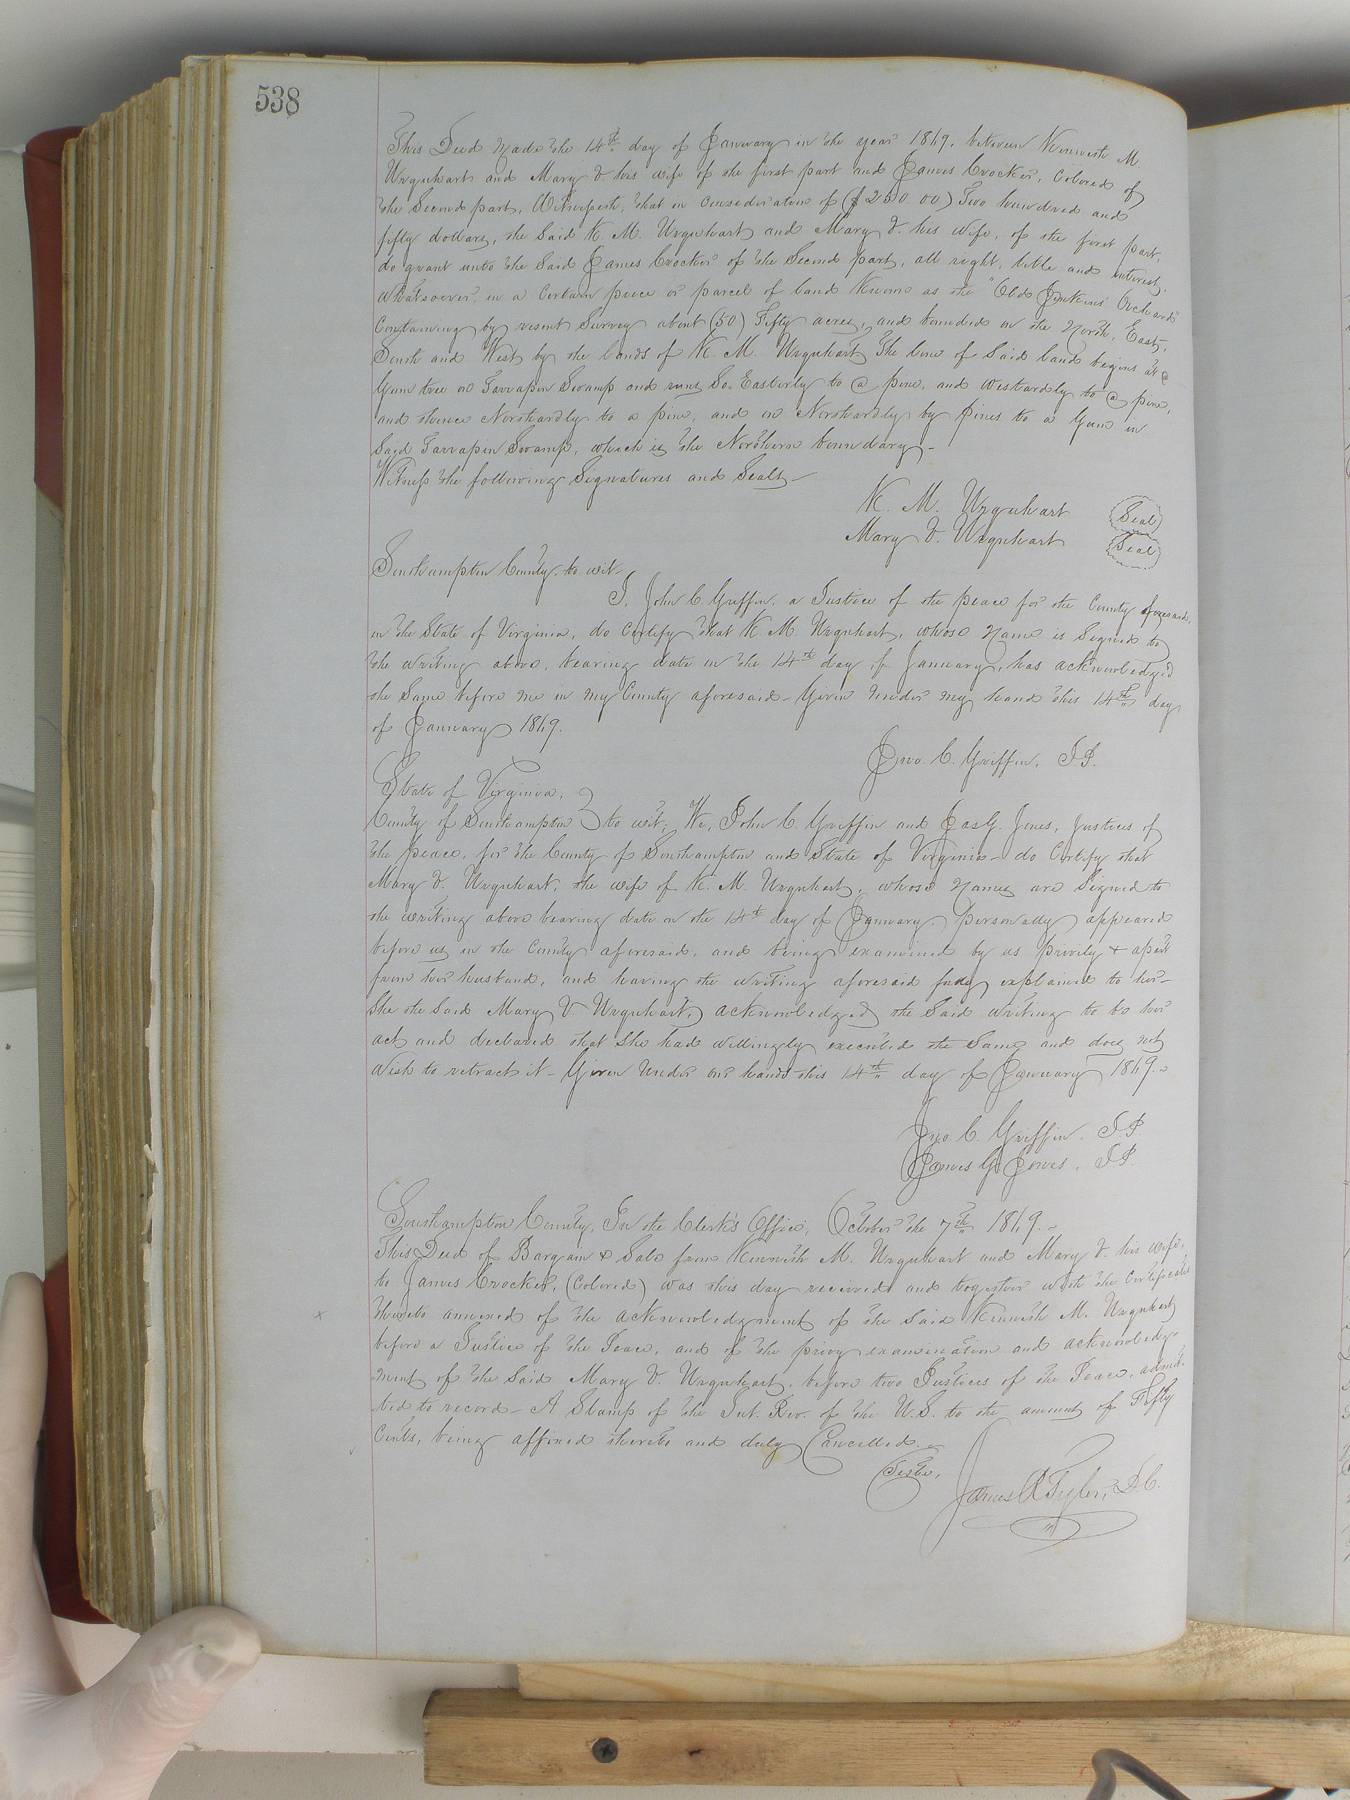 538
This Deed made the 14th day of January in the year 1869, between Kenneth M.
Urquhart and Mary V. his wife of the first part and James Crocker, Colored of
the Second part, Witnesseth, that in consideration of ($250.00) Two hundred and
fifty dollars, the Said K. M. Urquhart and Mary V. his wife, of the first part,
do grant unto the Said James Crocker of the Second part, all right, title and interest,
whatsoever, in a Certain piece or parcel of land Known as the "Old Jenkins Orchard"
Containing by resent Survey about (50) Fifty acres, and bounded on the North, East,
South and West by the lands of K. M. Urquhart The line of Said land begins at a
Gum tree on Tarrapin Swamp and runs So. Easterly to a pine, and westwardly to a pine,
and thence Northardly to a pine, and on Northardly by pines to a Gum in
Said Tarrapin Swamp, which is the Northern boundary-
Witness the following Signatures and Seals-
K. M. Urquhart (Seal)
Mary V. Urquhart (Seal)
Southampton County, to wit-
I, John C. Griffin, a Justice of the peace for the County aforesaid,
in the State of Virginia, do Certify that K. M. Urquhart, whose Name is Signed to
the writing above, bearing date on the 14th day of January, has acknowledged
the Same before me in my County aforesaid- Given under my hand this 14th day
of January 1869.
Jno. C. Griffin, J.P.
State of Virginia,
County of Southampton } to wit; We, John C Griffin and Jas G. Jones, Justices of
the peace, for the County of Southampton and State of Virginia- do Certify that
Mary V. Urquhart, the wife of K. M. Urquhart, whose Names are Signed to
the writing above bearing date on the 14th day of January, personally appeared
before us in the County aforesaid, and being examined by us privily & apart
from her husband, and having the writing aforesaid fully explained to her-
She the Said Mary V. Urquhart, acknowledged the Said writing to be her
act and declared that She had willingly executed the Same and does not
wish to retract it- Given under our hands this 14th day of January 1869.-
Jno C. Griffin. J.P.
James G Jones, J.P.
Southampton County, In the Clerk's Office, October the 7th 1869.-
This Deed of Bargain & Sale from Kenneth M. Urquhart and Mary V. his wife,
to James Crocker, (Colored) was this day received and together with the Certificates
thereto annexed of the acknowledgment of the Said Kenneth M. Urquhart
before a Justice of the Peace, and of the privy examination and acknowledg-
ment of the Said Mary V. Urquhart, before two Justices of the Peace, admit-
ted to record- A Stamp of the Int. Rev. of the U.S. to the amount of Fifty
Cents, being affixed thereto and duly Cancelled.-
Teste,
James A Tyler, D.C.